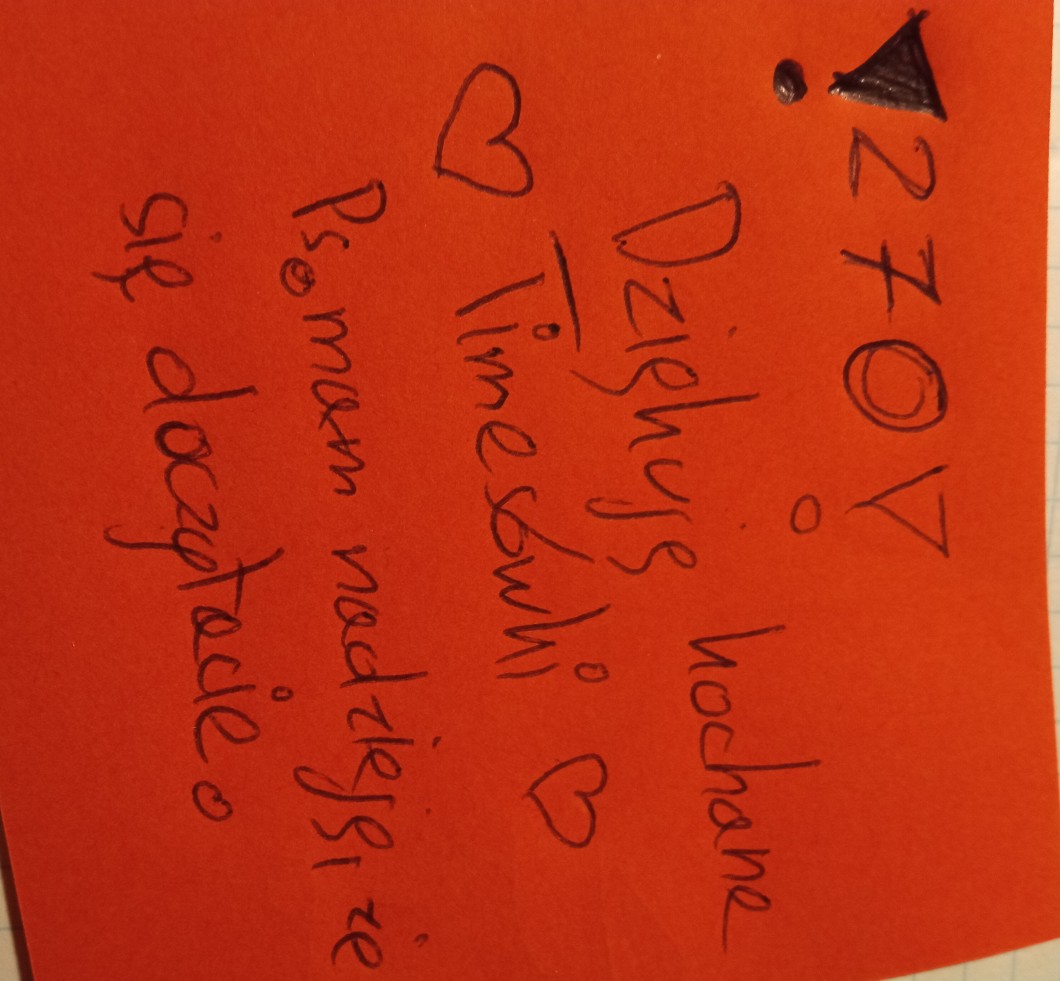 !270!
Dziękuję kochane
♡ Timesówki ♡
Ps. mam nadzieję, że
się doczytacie.